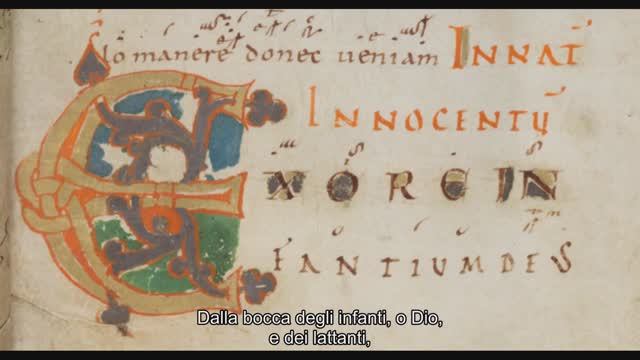 manere donec veniam IN NAT
INNOCENTŪ
EX ORE IN
FANTIUM DES
Dalla bocca degli infanti, o Dio,
e dei lattanti,